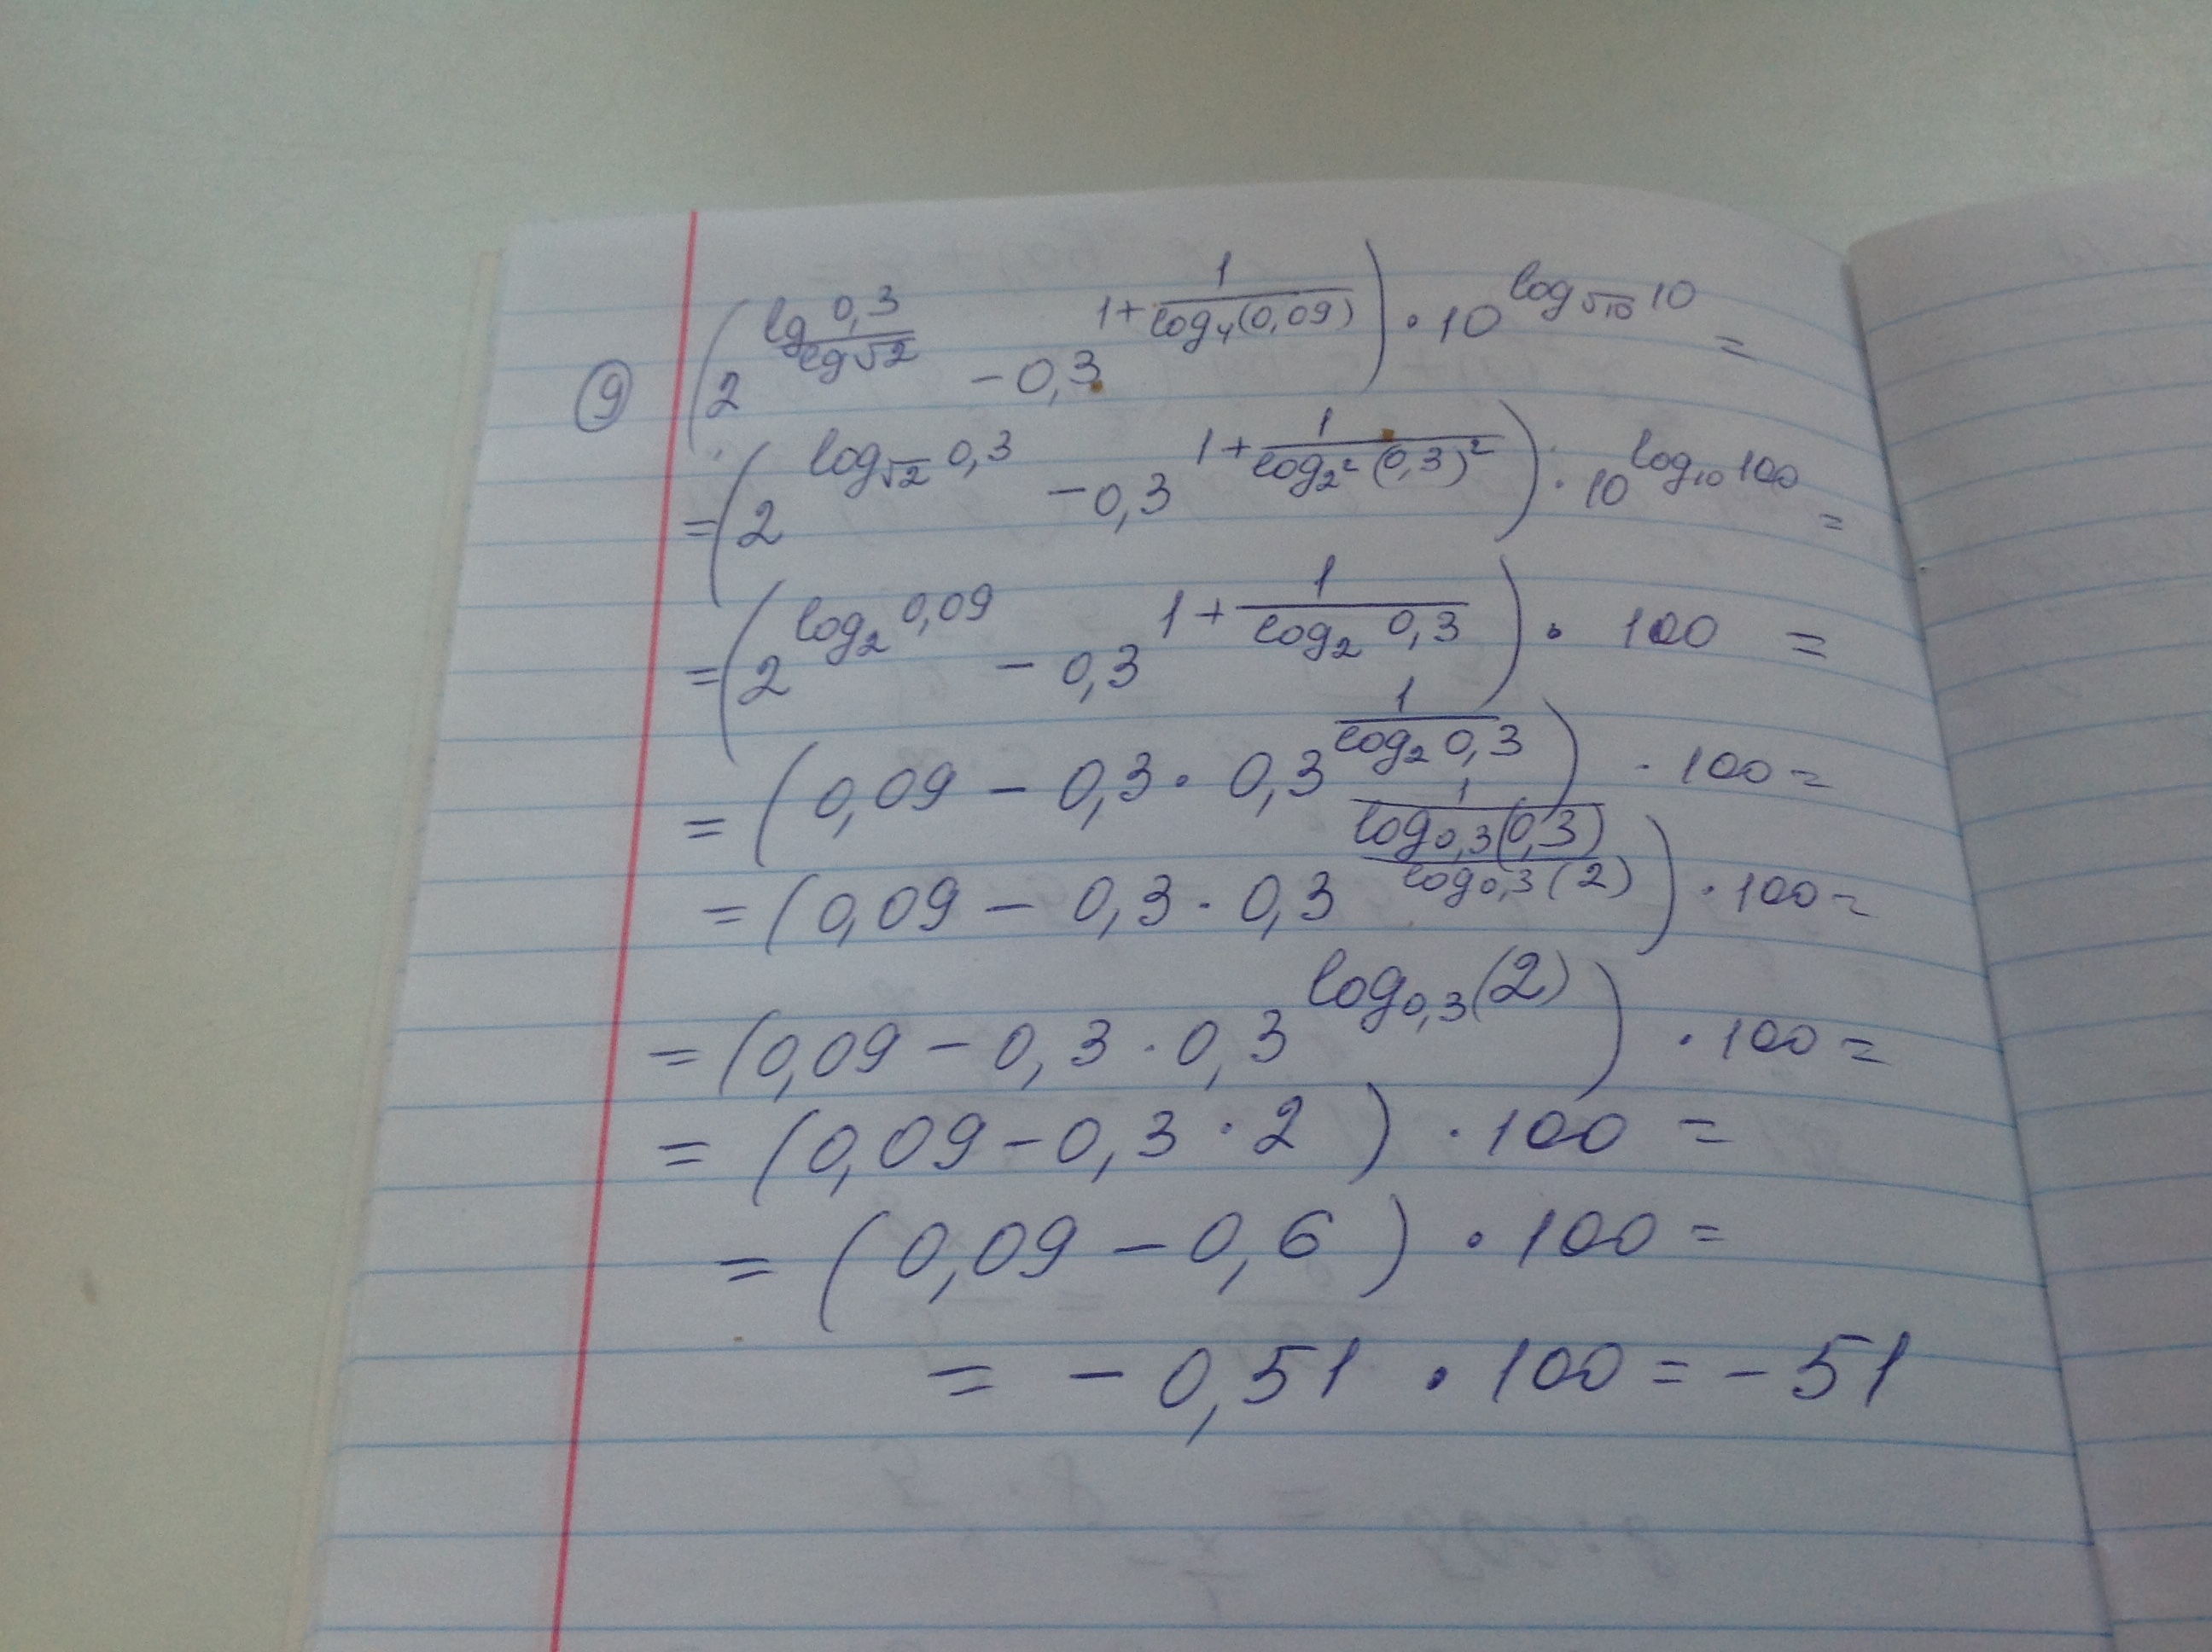 ⑨ (2^(lg 0,3 / lg √2) − 0,3^(1 + 1/(log₄(0,09)))) · 10^(log_√10 10) =
= (2^(log_√2 0,3) − 0,3^(1 + 1/(log_2² (0,3)²))) · 10^(log₁₀ 100) =
= (2^(log₂ 0,09) − 0,3^(1 + 1/(log₂ 0,3))) · 100 =
= (0,09 − 0,3 · 0,3^(1/(log₂ 0,3))) · 100 =
= (0,09 − 0,3 · 0,3^(1/(log_0,3(0,3)/log_0,3(2)))) · 100 =
= (0,09 − 0,3 · 0,3^(log_0,3(2))) · 100 =
= (0,09 − 0,3 · 2) · 100 =
= (0,09 − 0,6) · 100 =
= − 0,51 · 100 = − 51